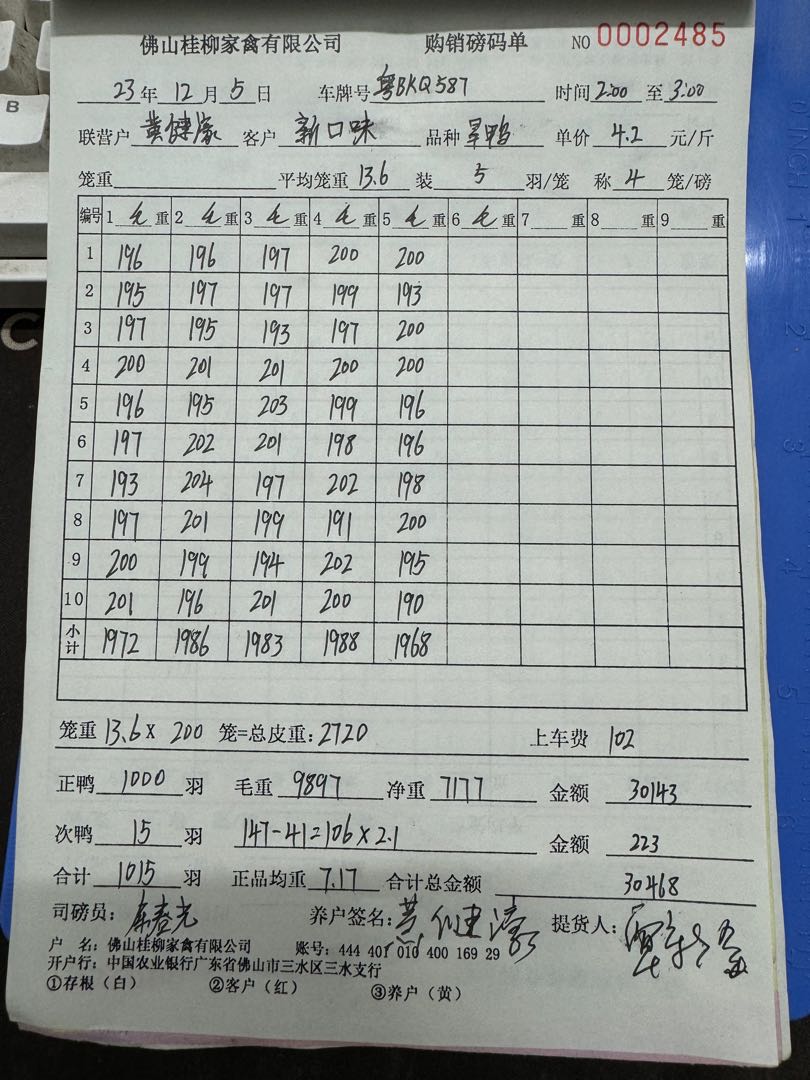 佛山桂柳家禽有限公司 购销磅码单 NO 0002485
23年12月5日 车牌号 粤BKQ587 时间 2:00 至 3:00
联营户 黄健濠 客户 新口味 品种 旱鸭 单价 4.2 元/斤
笼重 平均笼重 13.6 装 5 羽/笼 称 4 笼/磅
编号 1 毛 重 2 毛 重 3 毛 重 4 毛 重 5 毛 重 6 毛 重 7 重 8 重 9 重
1 196 196 197 200 200
2 195 197 197 199 193
3 197 195 193 197 200
4 200 201 201 200 200
5 196 195 203 199 196
6 197 202 201 198 196
7 193 204 197 202 198
8 197 201 199 191 200
9 200 199 194 202 195
10 201 196 201 200 190
小计 1972 1986 1983 1988 1968
笼重 13.6 x 200 笼=总皮重: 2720 上车费 102
正鸭 1000 羽 毛重 9897 净重 7177 金额 30143
次鸭 15 羽 147-41=106x2.1 金额 223
合计 1015 羽 正品均重 7.17 合计总金额 30468
司磅员: 养户签名: 黄健濠 提货人:
户 名: 佛山桂柳家禽有限公司 账号: 444 401 010 400 169 29
开户行: 中国农业银行广东省佛山市三水区三水支行
①存根（白） ②客户（红） ③养户（黄）
B
C